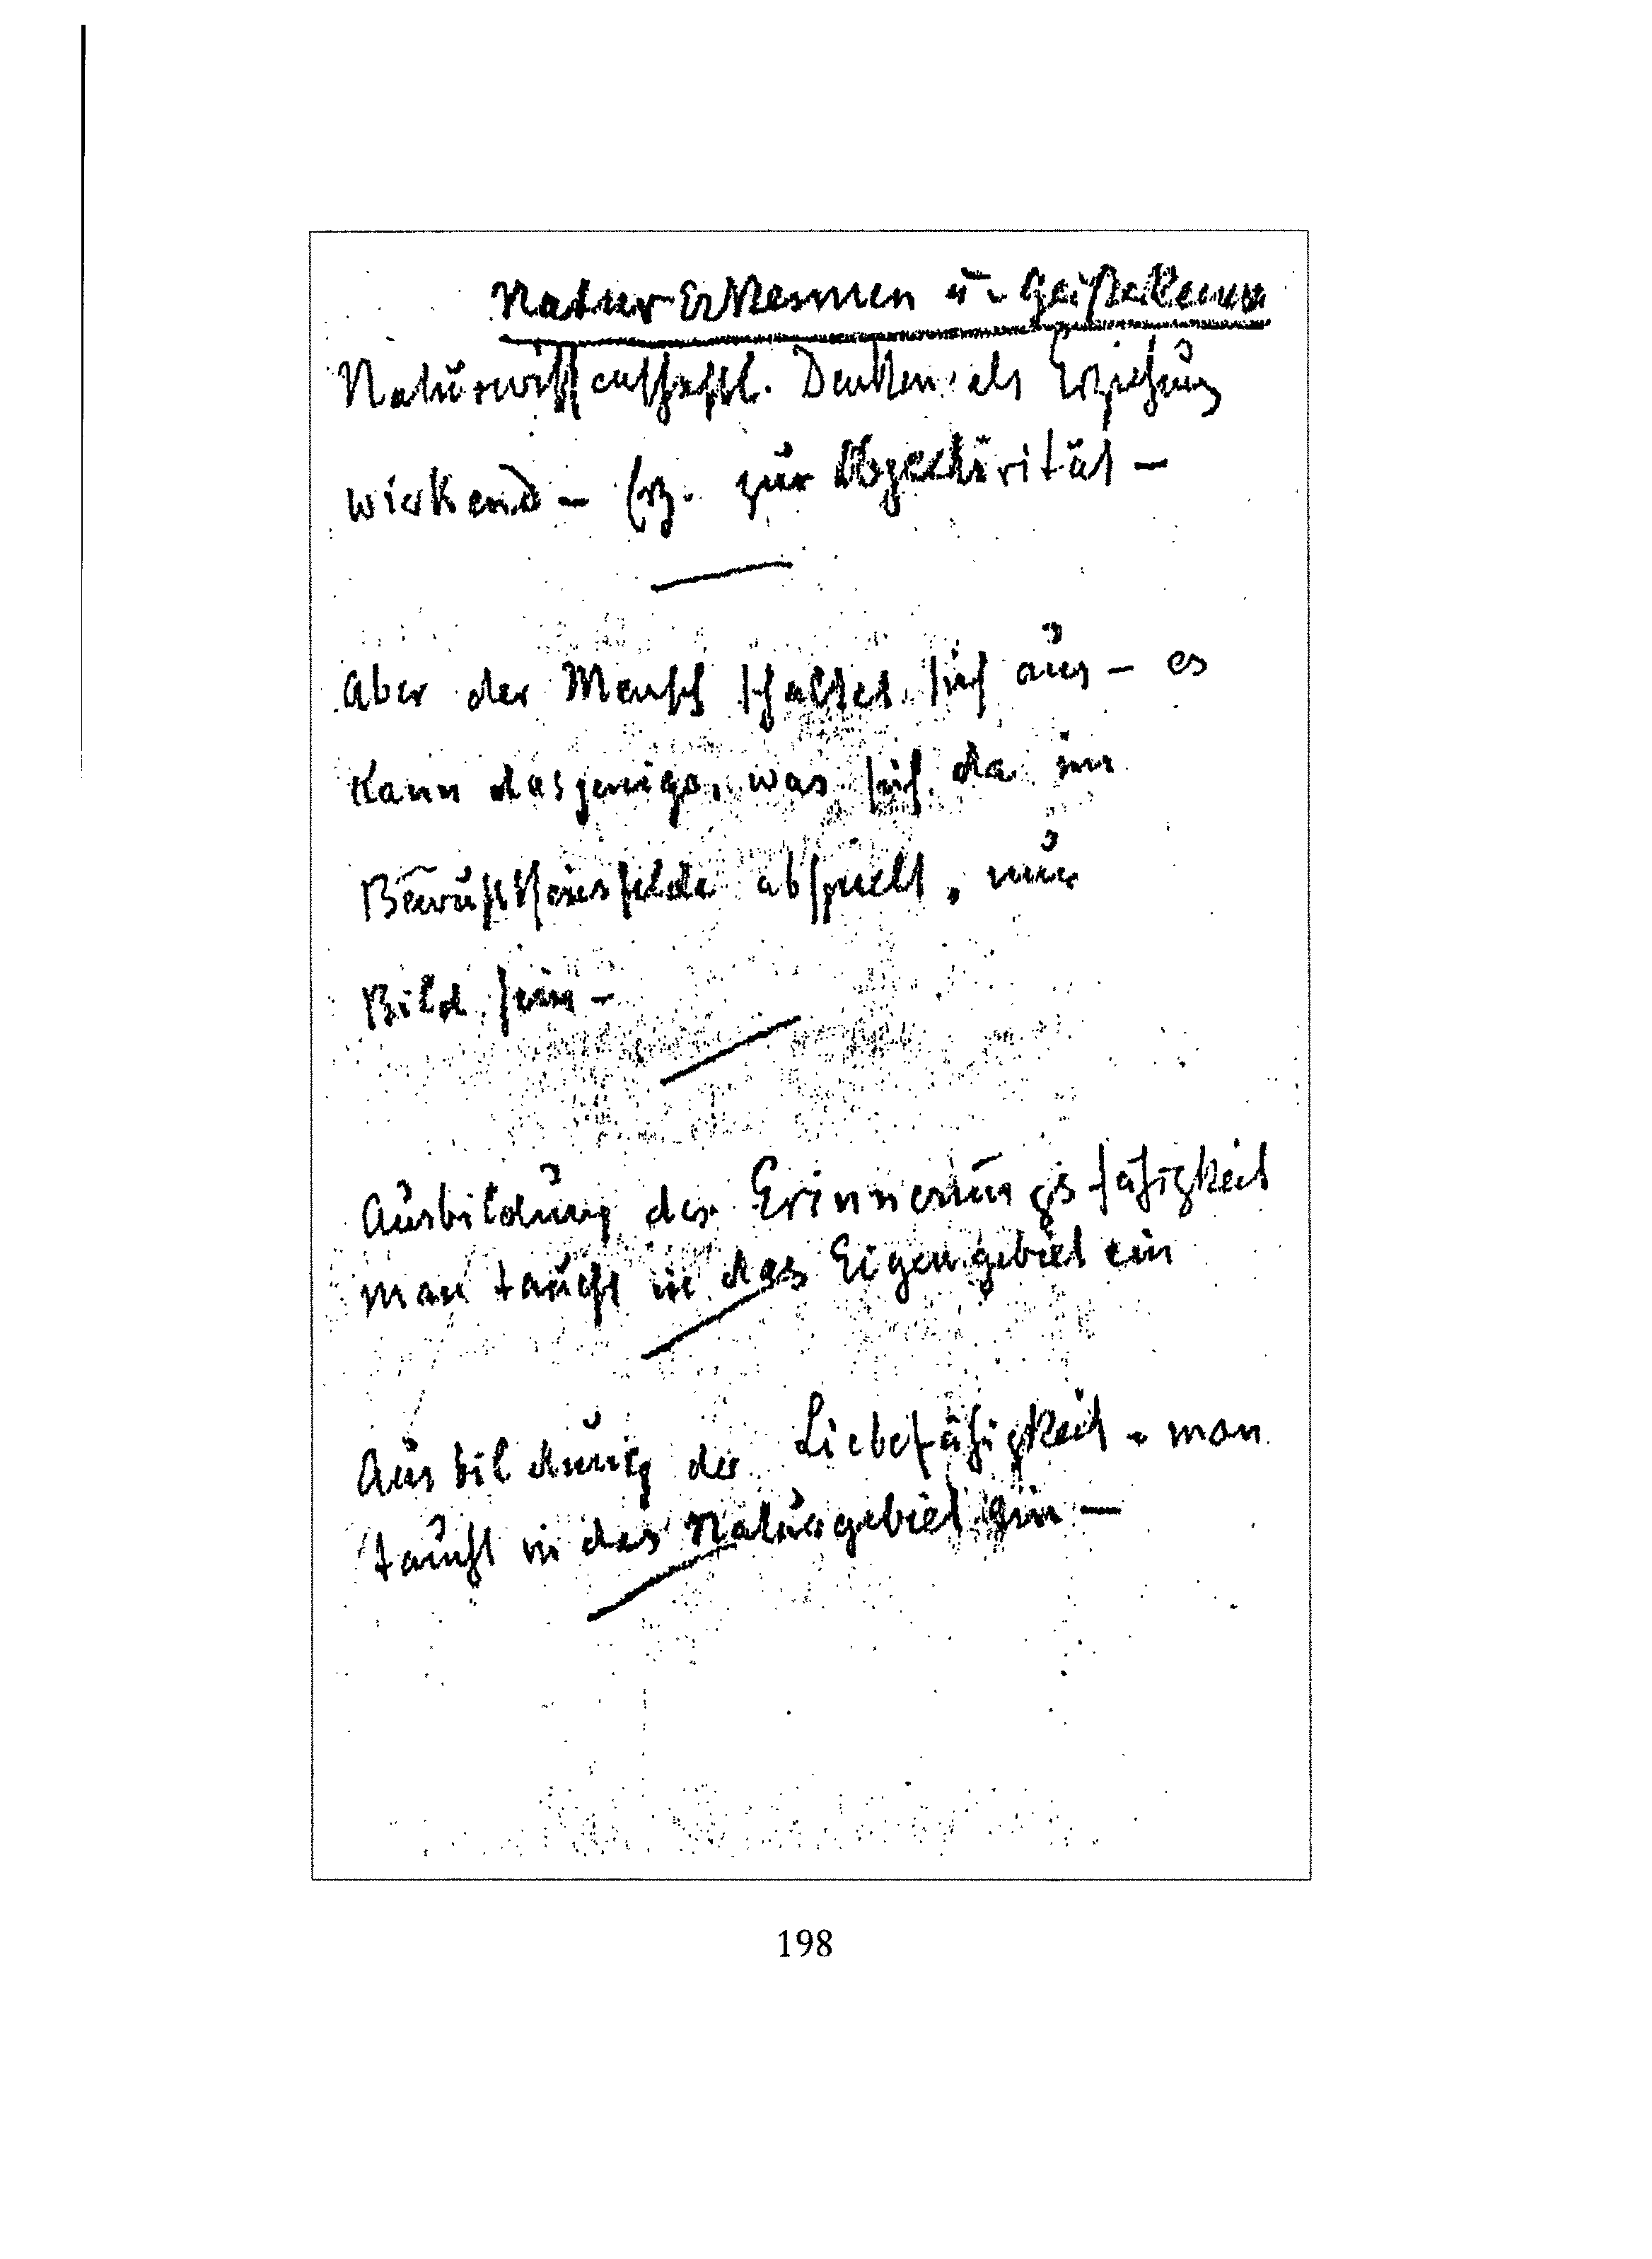 Naturerkennen u. Geisterkennen
Naturwissenschaftl. Denken als Erziehung
wirkend – Erz. zur Objectivität –
Aber der Mensch schaltet sich aus – es
kann dasjenige, was sich da im
Bewußtseinsfelde abspielt, nur
Bild sein –
Ausbildung der Erinnerungsfähigkeit
man taucht in das Eigengebiet ein
Ausbildung der Liebefähigkeit – man
taucht in das Naturgebiet ein –
198